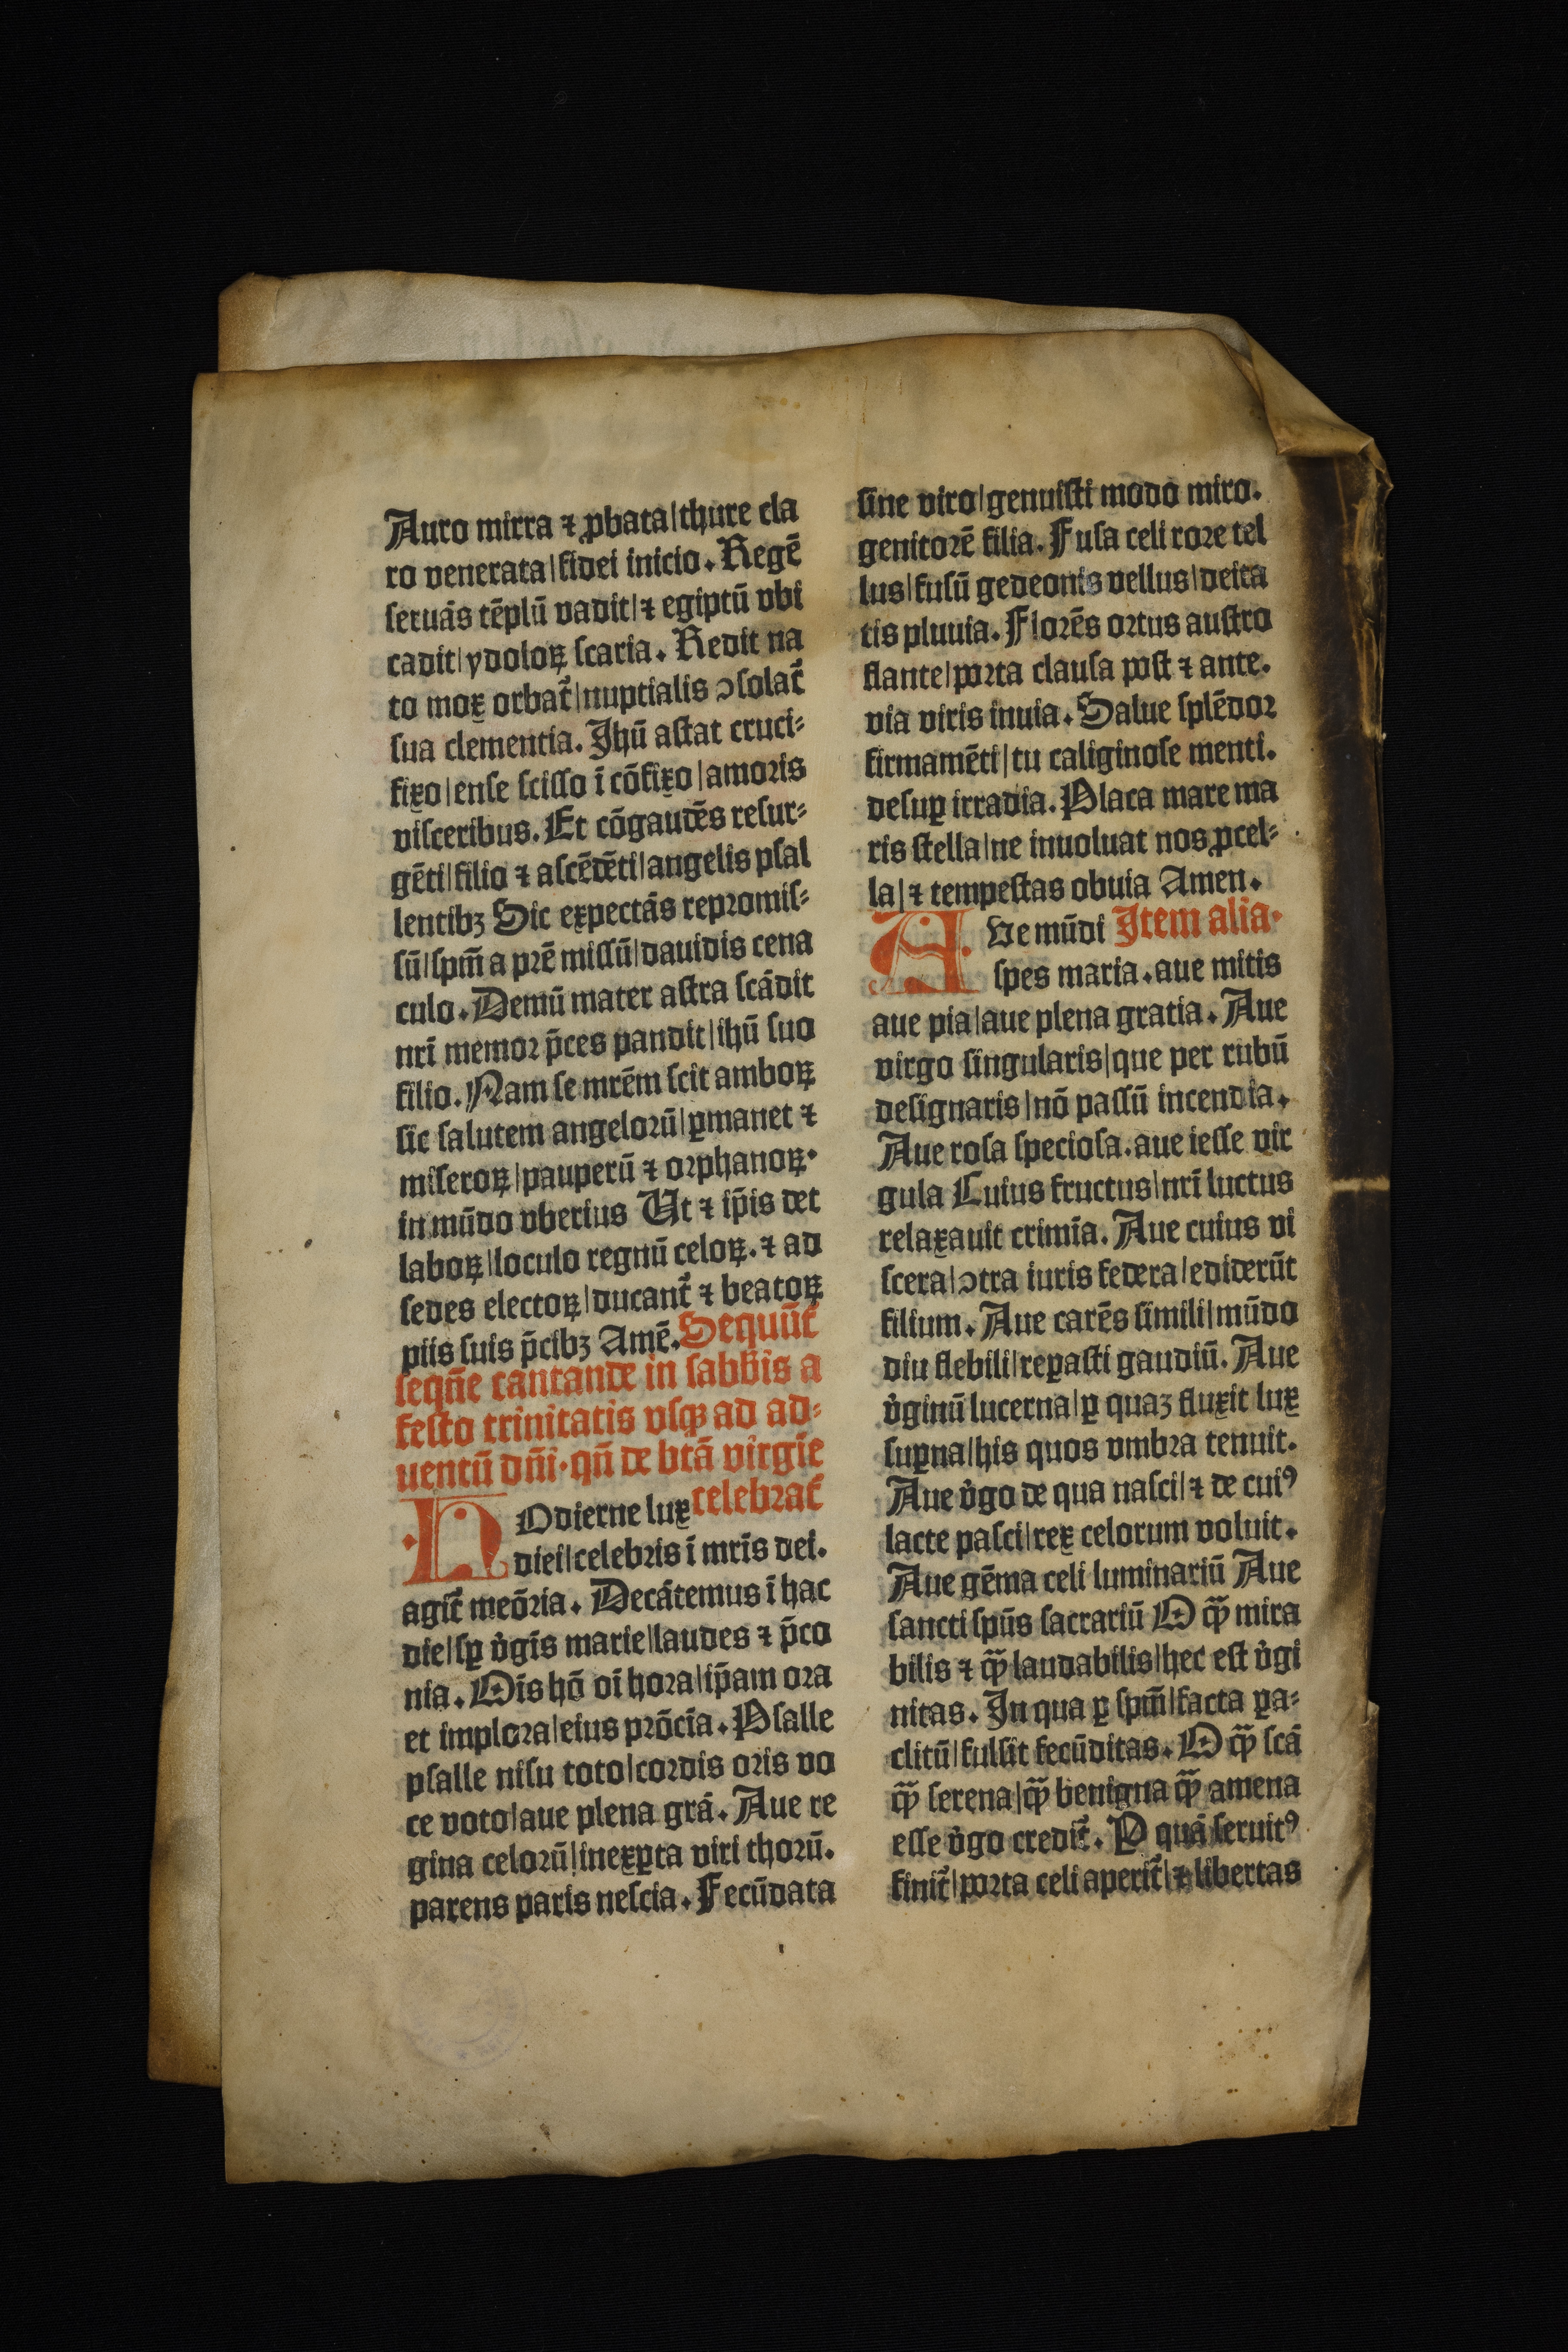 Auro mirra ⁊ ꝓbata|thure cla
ro venerata|fidei inicio. Regē
seruās tēplū vadit|⁊ egiptū vbi
cadit|ydoloꝝ scaria. Redit na
to mox orbat᷑|nuptialis ↄsolat᷑
sua clementia. Jhū astat cruci⸗
fixo|ense scisso ī cōfixo|amoris
visceribus. Et cōgaudēs resur⸗
gēti|filio ⁊ ascēdēti|angelis psal
lentibꝫ Sic expectās repromis⸗
sū|spm̄ a prē missū|dauidis cena
culo. Demū mater astra scādit
nrī memor p̄ces pandit|ihū suo
filio. Nam se mrēm scit amboꝝ
sic salutem angelorū|ꝑmanet ⁊
miseroꝝ|pauperū ⁊ orphanoꝝ.
in mūdo vberius Ut ⁊ ip̄is det
laboꝝ|loculo regnū celoꝝ. ⁊ ad
sedes electoꝝ|ducant᷑ ⁊ beatoꝝ
piis suis p̄cibꝫ Amē. Sequūt᷑
seqn̄e cantande in sabb̄is a
festo trinitatis vsqꝫ ad ad⸗
uentū dn̄i. qn̄ de btā virgīe
celebrat᷑
HOdierne lux
diei|celebris ī mrīs dei.
agit᷑ meōria. Decātemus ī hac
die|sꝑ v̓gīs marie|laudes ⁊ p̄co
nia. Oīs hō oī hora|ip̄am ora
et implora|eius prōcīa. Psalle
psalle nisu toto|cordis oris vo
ce voto|aue plena grā. Aue re
gina celorū|inexꝑta viri thorū.
parens paris nescia. Fecūdata
sine viro|genuisti modo miro.
genitorē filia. Fusa celi rore tel
lus|fusū gedeonis vellus|deita
tis pluuia. Florēs ortus austro
flante|porta clausa post ⁊ ante.
via viris inuia. Salue splēdor
firmamēti|tu caliginose menti.
desuꝑ irradia. Placa mare ma
ris stella|ne inuoluat nos ꝓcel⸗
la|⁊ tempestas obuia Amen.
AVe mūdi Item alia.
spes maria. aue mitis
aue pia|aue plena gratia. Aue
virgo singularis|que per rubū
designaris|nō passū incendia.
Aue rosa speciosa. aue iesse vir
gula Cuius fructus|nrī luctus
relaxauit crimīa. Aue cuius vi
scera|ↄtra iuris federa|ediderūt
filium. Aue carēs simili|mūdo
diu flebili|reꝑasti gaudiū. Aue
v̓ginū lucerna|ꝑ quaꝫ fluxit lux
suꝑna|his quos vmbra tenuit.
Aue v̓go de qua nasci|⁊ de cuiꝰ
lacte pasci|rex celorum voluit.
Aue gēma celi luminariū Aue
sancti spūs sacrariū O qꝫ̄ mira
bilis ⁊ qꝫ̄ laudabilis|hec est v̓gi
nitas. In qua ꝑ spm̄|facta ꝑa⸗
clitū|fulsit fecūditas. O qꝫ̄ scā
qꝫ̄ serena|qꝫ̄ benigna qꝫ̄ amena
esse v̓go credit᷑. P quā seruitꝰ
finit᷑|porta celi aperit᷑|⁊ libertas